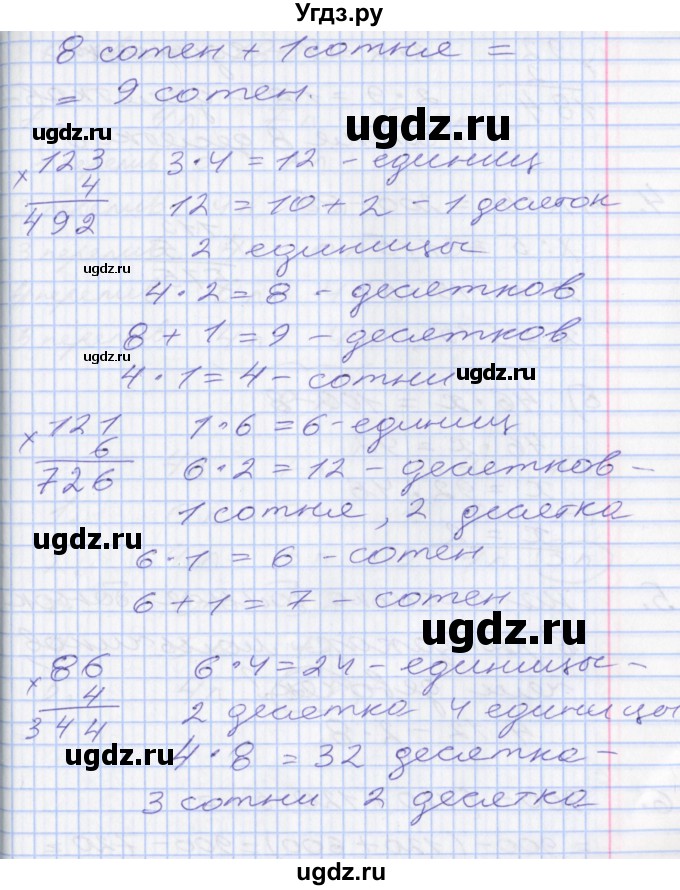 Угдз.ру
8 сотен + 1 сотня =
= 9 сотен.
ugdz.ru
ugdz.ru
× 123 3 · 4 = 12 - единиц
4
492 12 = 10 + 2 - 1 десяток
ugdz.ru
2 единицы
ugdz.ru
4 · 2 = 8 - десятков
8 + 1 = 9 - десятков
ugdz.ru
4 · 1 = 4 - сотни
ugdz.ru
× 121 1 · 6 = 6 - единиц
6
726 6 · 2 = 12 - десятков -
1 сотня, 2 десятка
ugdz.ru
6 · 1 = 6 - сотен
6 + 1 = 7 - сотен
ugdz.ru
× 86 6 · 4 = 24 - единицы -
4
344 2 десятка 4 единицы
ugdz.ru
4 · 8 = 32 десятка -
3 сотни 2 десятка
ugdz.ru